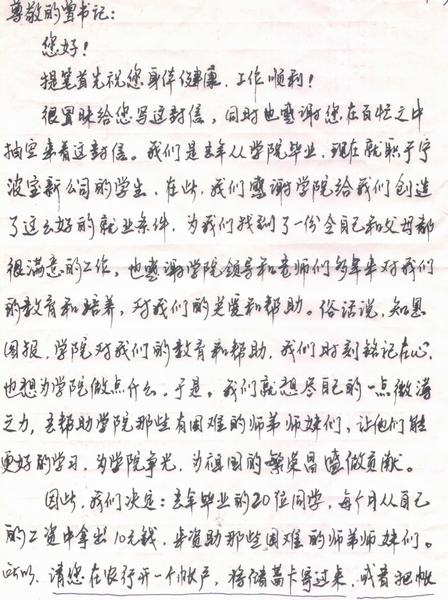 尊敬的曾书记：
您好！
提笔首先祝您身体健康，工作顺利！
很冒昧给您写这封信，同时也感谢您在百忙之中
抽空来看这封信。我们是去年从学院毕业，现在就职于宁
波宝新公司的学生，在此，我们感谢学院给我们创造
了这么好的就业条件，为我们找到了一份令自己和父母都
很满意的工作，也感谢学院领导和老师们多年来对我们
的教育和培养，对我们的关爱和帮助。俗话说，知恩
图报，学院对我们的教育和帮助，我们时刻铭记在心，
也想为学院做点什么。于是，我们就想尽自己的一点微薄
之力，去帮助学院那些有困难的师弟师妹们，让他们能
更好的学习，为学院争光，为祖国的繁荣昌盛做贡献。
因此，我们决定：去年毕业的20位同学，每个月从自己
的工资中拿出10元钱，来资助那些困难的师弟师妹们。
所以，请您在农行开一个帐户，将储蓄卡寄过来，或者把帐